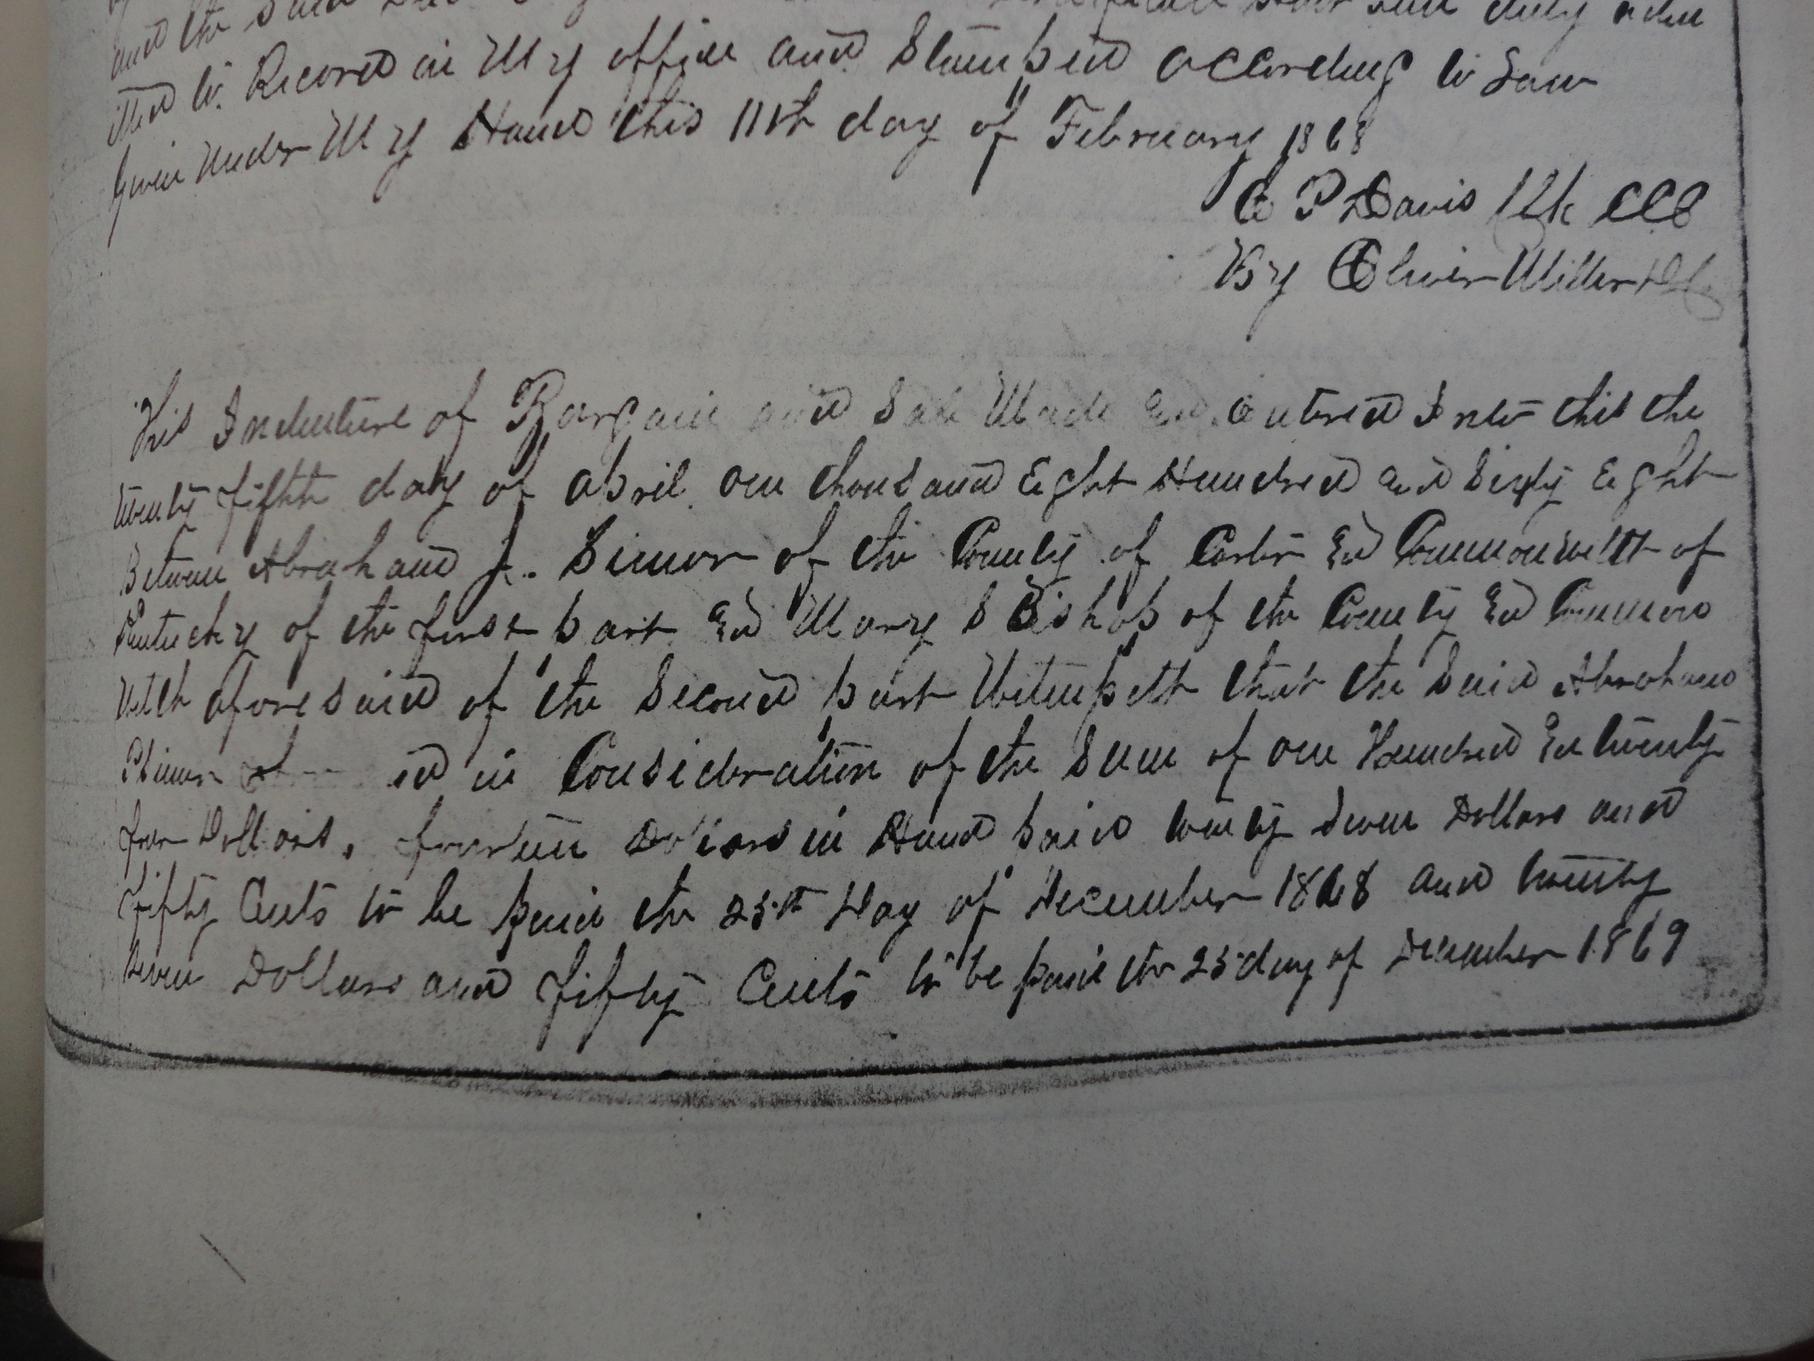 and the said
duly admi
itted to Record in My office and Stamped according to Law
Given under My Hand this 11th day of February 1868
P Davis Clk CCC
By Oliver Miller DC
This Indenture of Bargain and Sale Made End entered Into this the
twenty fifth day of April one thousand Eight Hundred and Sixty Eight
Between Abraham J. Simon of the County of Carter End Commonwelth of
Kentucky of the first part End Mary S Bishop of the County End Common
welth aforesaid of the Second part Witnesseth that the Said Abraham
in Consideration of the Sum of one Hundred En twenty
four Dollars, fourteen Dollars in Hand paid twenty Seven Dollars and
fifty Cents to be paid the 25th Day of December 1868 and twenty
Seven Dollars and fifty Cents to be paid the 25 day of December 1869